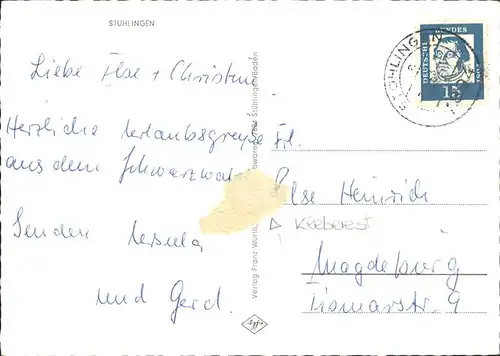 STÜHLINGEN
Liebe Ilse + Christine
Herzliche Urlaubsgrüße
aus dem Schwarzwald
Senden Ursula
und Gerd.
Verlag Franz Wurth, Stühlingen/Baden
Agfa
STÜHLINGEN
DEUTSCHE BUNDESPOST
15
Frl.
Ilse Heinrich
Kleberest
Magdeburg
Bismarstr. 9